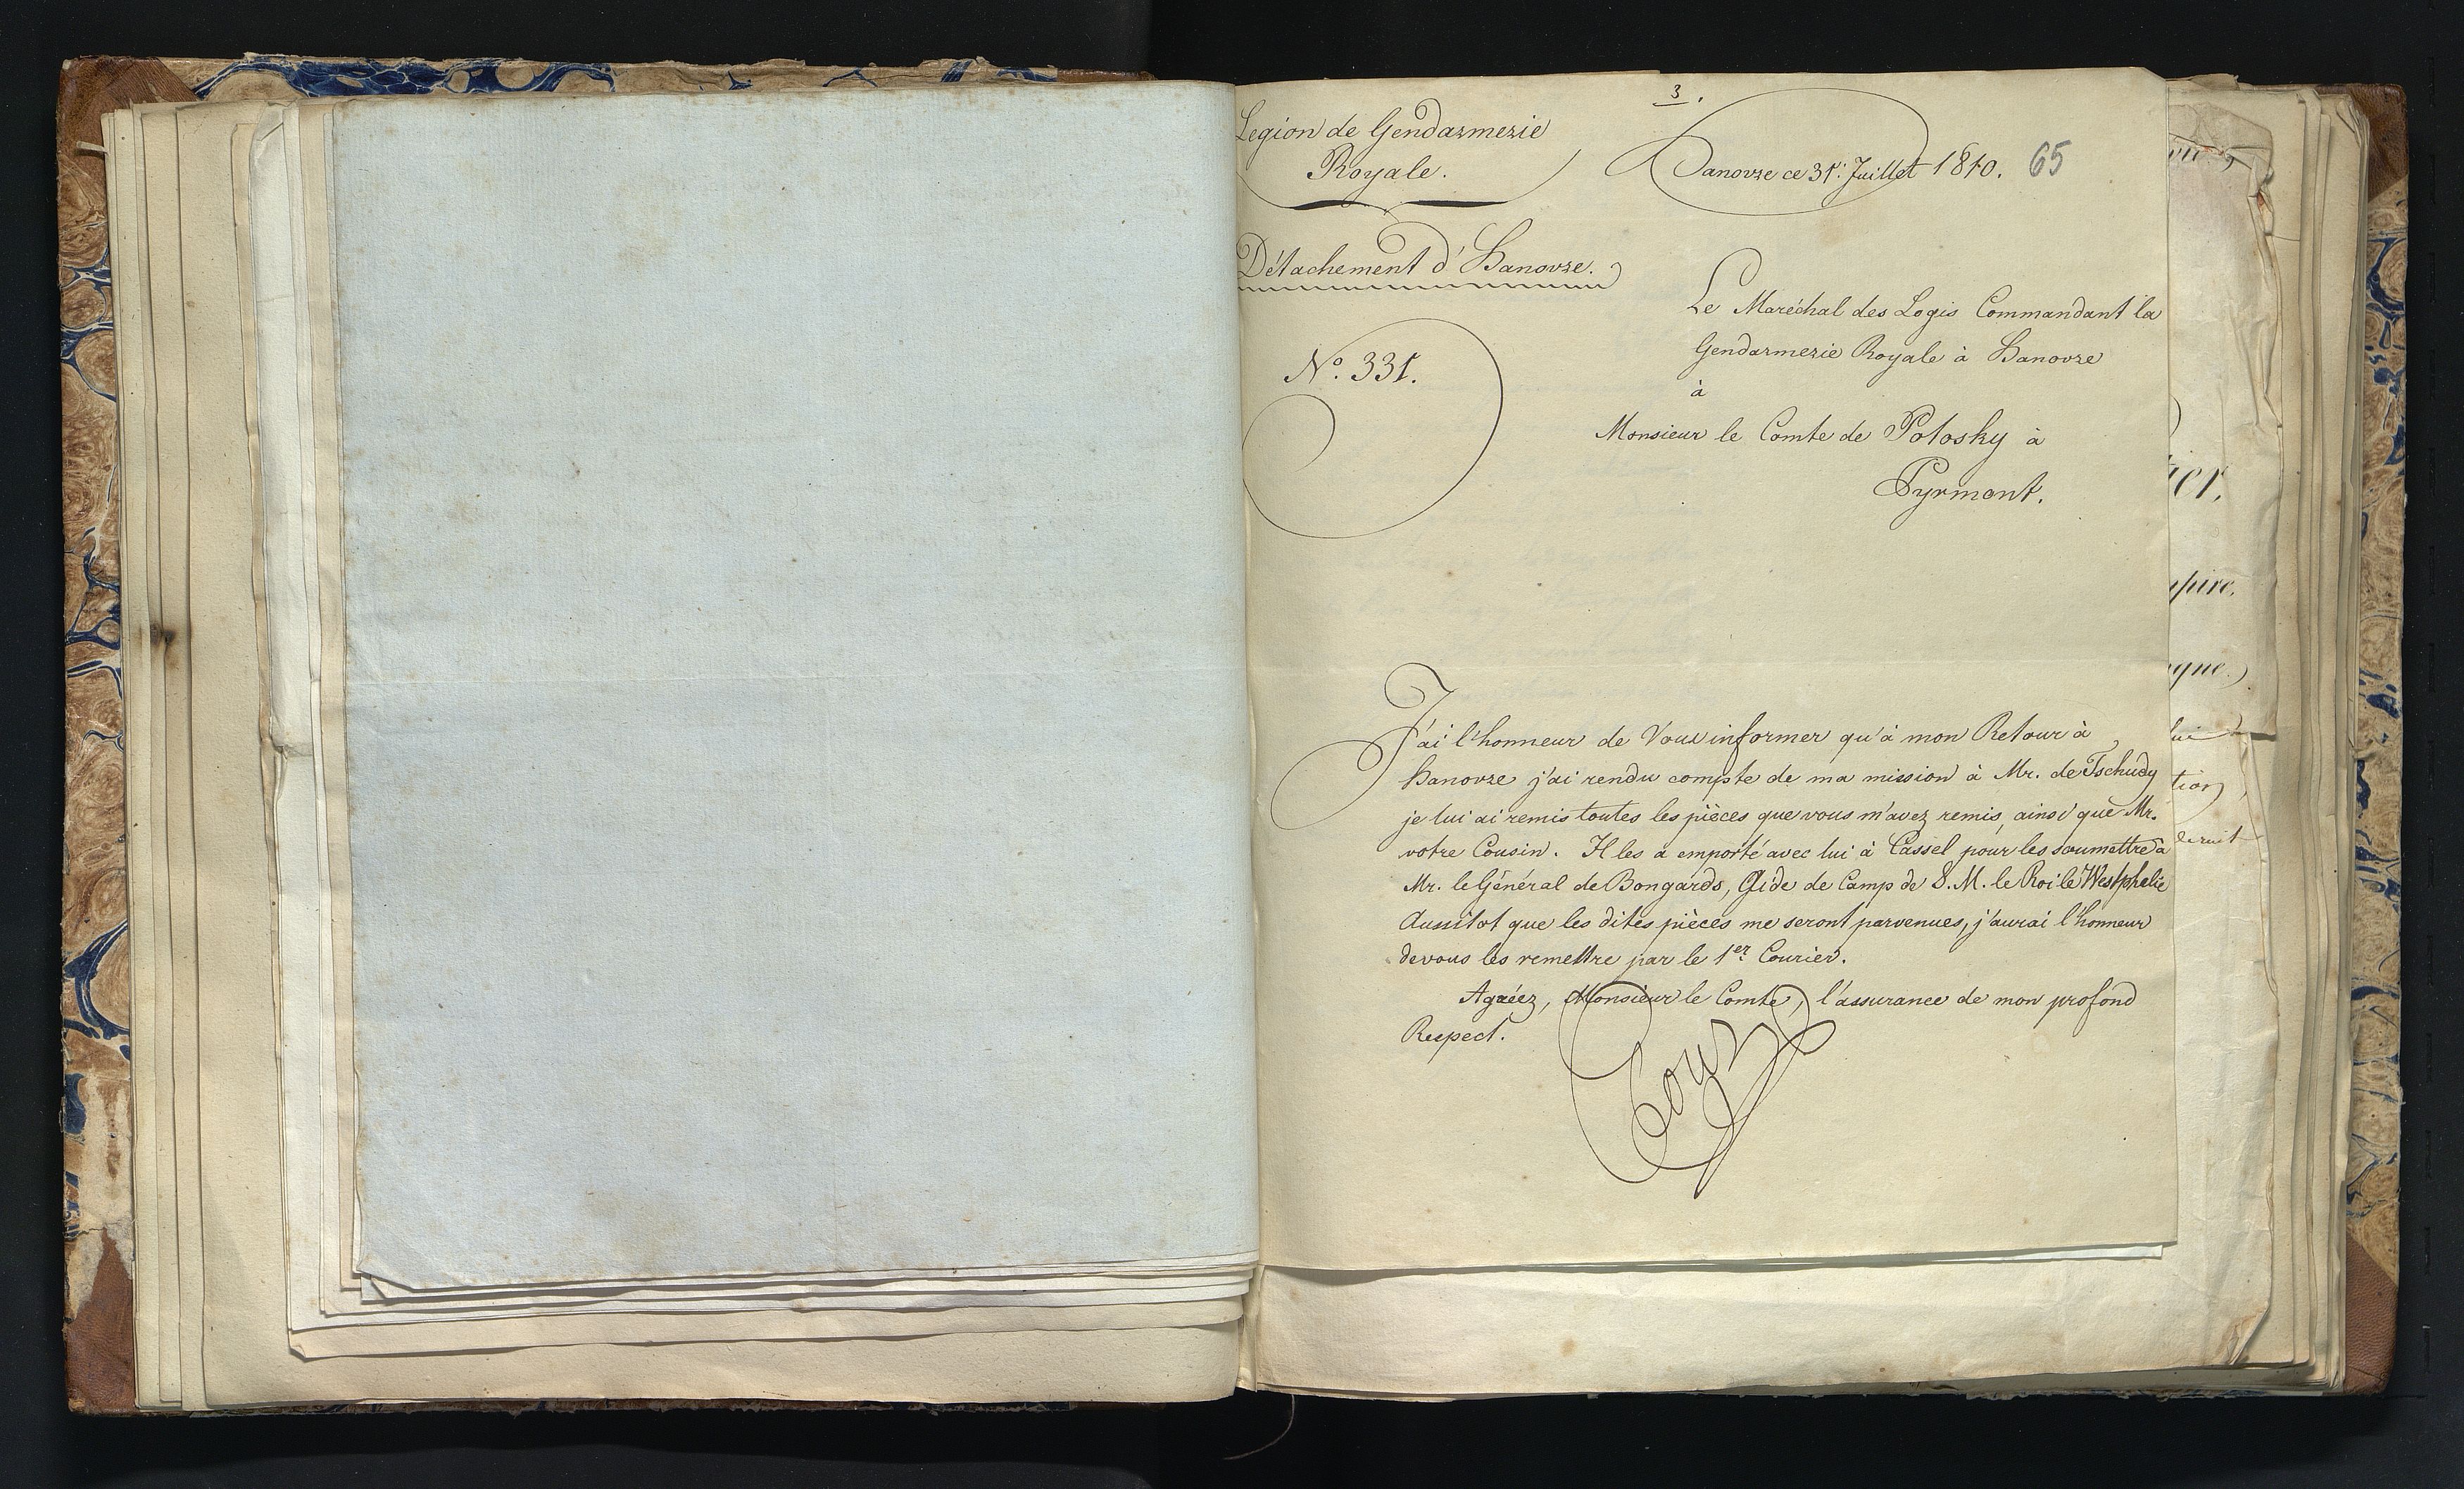 3.
Legion de Gendarmerie
Royale.
Hanovre ce 31: Juillet 1810. 65
Détachement d'Hanovre.
Le Maréchal des Logis Commandant la
Gendarmerie Royale à Hanovre
à
Monsieur le Comte de Potosky à
Pyrmont.
No. 331.
J'ai l'honneur de Vous informer qu'à mon Retour à
Hanovre j'ai rendu compte de ma mission à Mr. de Tschudy
je lui ai remis toutes les pièces que vous m'avez remis, ainsi que Mr.
votre Cousin. Il les a emporté avec lui à Cassel pour les soumettre à
Mr. le Général de Bongards, Aide de Camp de S. M. le Roi de Westphalie
Aussitot que les dites pièces me seront parvenues, j'aurai l'honneur
de vous les remettre par le 1er Courier.
Agréez, Monsieur le Comte, l'assurance de mon profond
Respect.